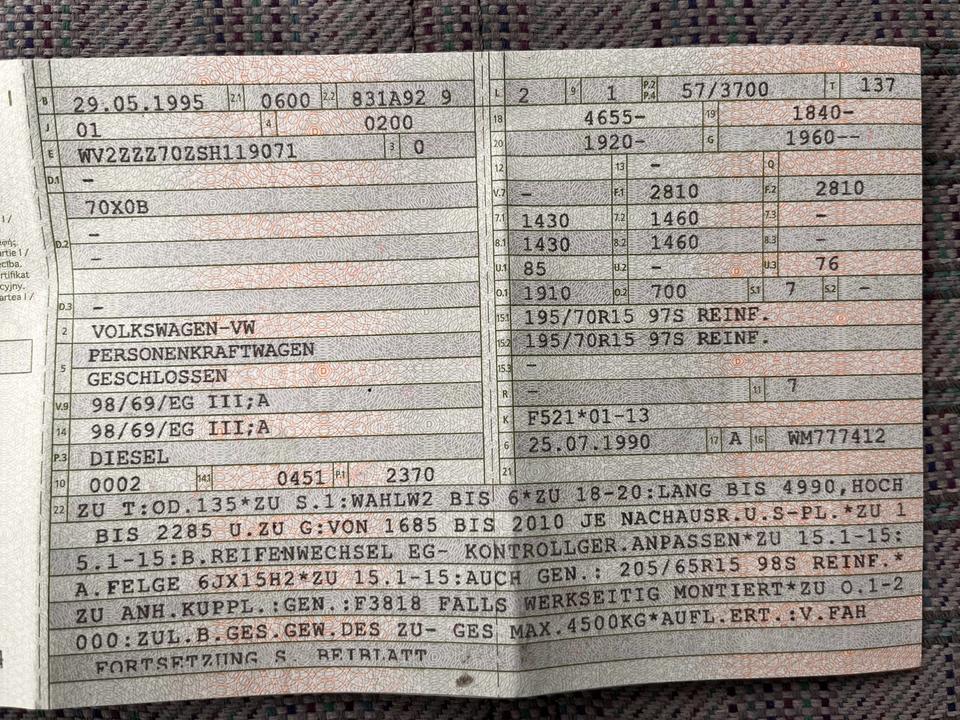 B 29.05.1995 2.1 0600 2.2 831A92 9
J 01 4 0200
E WV2ZZZ70ZSH119071 3 0
D.1 –
70X0B
D.2 –
–
D.3 –
2 VOLKSWAGEN-VW
5 PERSONENKRAFTWAGEN
GESCHLOSSEN
V.9 98/69/EG III;A
14 98/69/EG III;A
P.3 DIESEL
10 0002 14.1 0451 P.1 2370
L 2 9 1 P.2 P.4 57/3700 T 137
18 4655- 19 1840-
20 1920- G 1960--
12 13 – Q
V.7 – F.1 2810 F.2 2810
7.1 1430 7.2 1460 7.3 –
8.1 1430 8.2 1460 8.3 –
U.1 85 U.2 – U.3 76
O.1 1910 O.2 700 S.1 7 S.2 –
15.1 195/70R15 97S REINF.
15.2 195/70R15 97S REINF.
15.3 –
R – 11 7
K F521*01-13
6 25.07.1990 17 A 16 WM777412
21
22 ZU T:OD.135*ZU S.1:WAHLW2 BIS 6*ZU 18-20:LANG BIS 4990,HOCH
BIS 2285 U.ZU G:VON 1685 BIS 2010 JE NACHAUSR.U.S-PL.*ZU 1
5.1-15:B.REIFENWECHSEL EG- KONTROLLGER.ANPASSEN*ZU 15.1-15:
A.FELGE 6JX15H2*ZU 15.1-15:AUCH GEN.: 205/65R15 98S REINF.*
ZU ANH.KUPPL.:GEN.:F3818 FALLS WERKSEITIG MONTIERT*ZU O.1-2
000:ZUL.B.GES.GEW.DES ZU- GES MAX.4500KG*AUFL.ERT.:V.FAH
FORTSETZUNG S. BEIBLATT